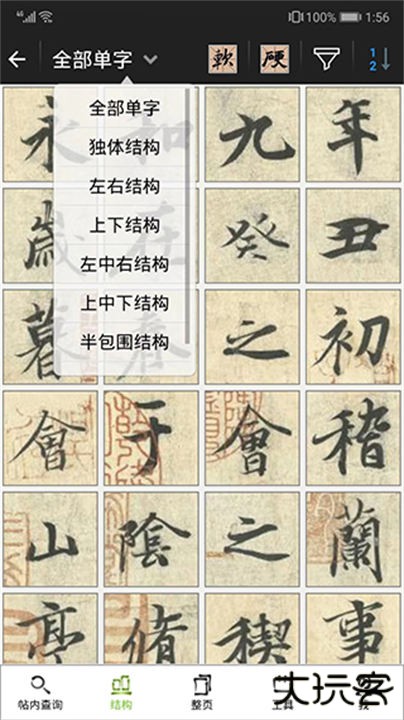 100% 1:56
全部单字 軟 硬 1 2
全部单字
独体结构
左右结构
上下结构
左中右结构
上中下结构
半包围结构
永 和 九 年
歲 在 癸 丑
暮 春 之 初
會 于 會 稽
山 陰 之 蘭
亭 脩 稧 事
帖内查询 结构 整页 工具 我
大玩客